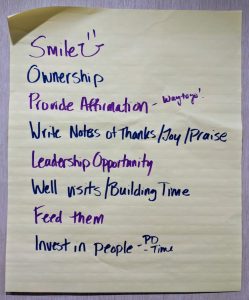 Smile
Ownership
Provide Affirmation - Way to go!
Write Notes of Thanks/Joy/Praise
Leadership Opportunity
Well visits/Building Time
Feed them
Invest in people - PD
- Time